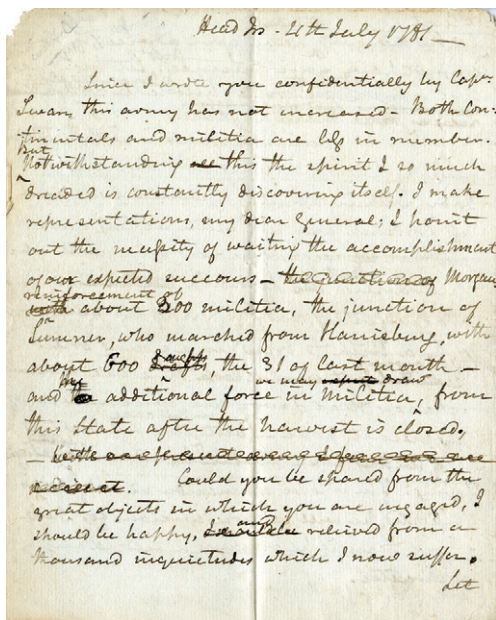 Head Qrs. 4th July 1781
Since I wrote you confidentially by Capn.
Swan this army has not increased - Both Con-
tinentals and militia are less in number.
But
Notwithstanding this the spirit I so much
dreaded is constantly discovering itself. I make
representations, my dear General; I point
out the necessity of waiting the accomplishment
of our expected succours - Morgan
reinforcement of
about 500 militia, the junction of
Sumner, who marched from Harrisburg, with
about 600 draughts, the 31 of last month -
and any additional force we may draw in militia, from
this State after the harvest is closed.
Could you be spared from the
great objects in which you are engaged, I
should be happy, and relieved from a
thousand inquietudes which I now suffer.
Let